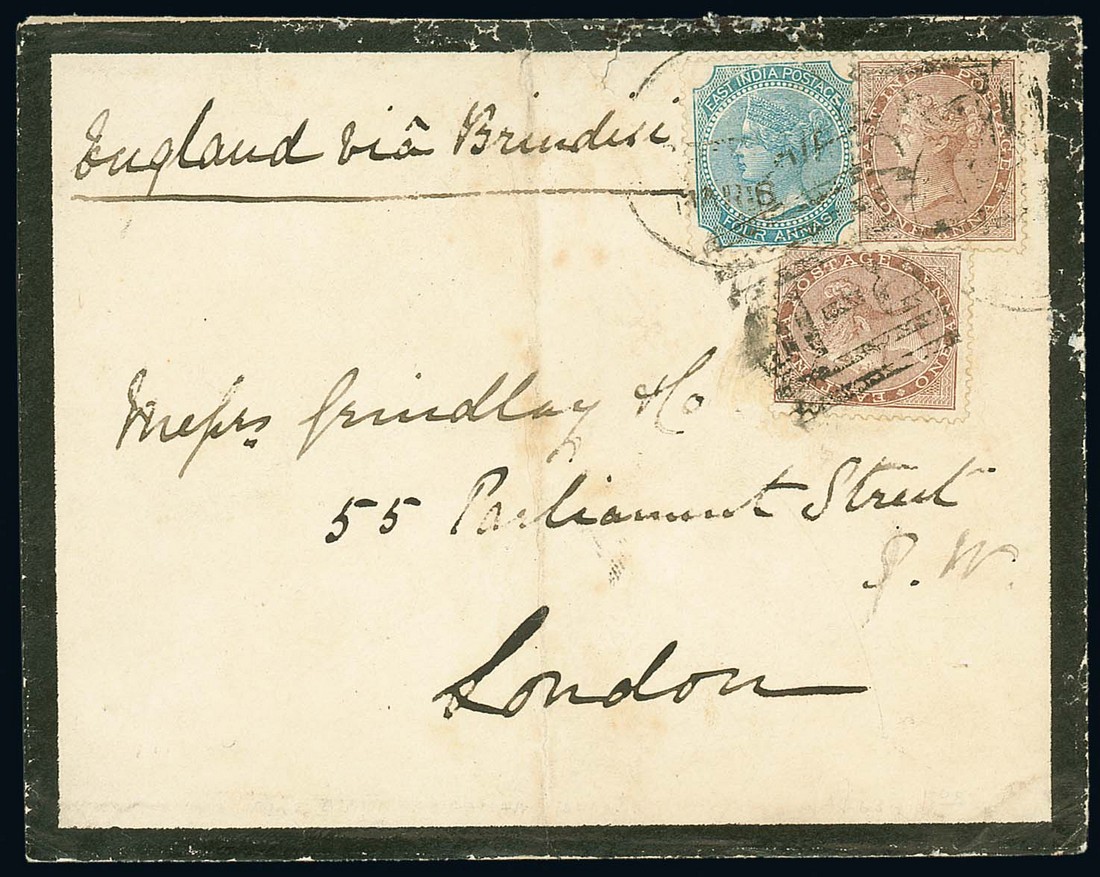 England viâ Brindisi
EAST INDIA POSTAGE
FOUR ANNAS
EAST INDIA POSTAGE
ONE ANNA
EAST INDIA POSTAGE
ONE ANNA
Messrs Grindlay & Co
55 Parliament Street
S.W.
London